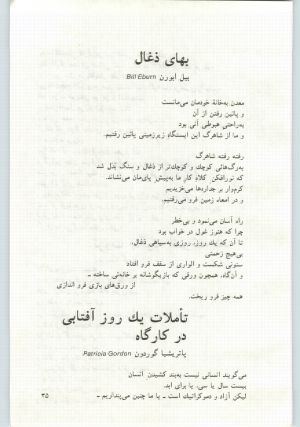 بهای ذغال
بیل ابورن Bill Eburn
معدن به‌خانهٔ خودمان می‌مانست
و پائین رفتن از آن
به‌راحتی هبوطی آنی بود
و ما از شاهرگ این ایستگاهِ زیرزمینی پائین رفتیم.
رفته رفته شاهرگ
به‌رگ‌هائی کوچك و کوچك‌تر از ذغال و سنگ بَدل شد
که نورافکنِ کلاهِ کار ما به‌پیشِ پای‌مان می‌نشاند.
کرم‌وار بر جداره‌ها می‌خزیدیم
و در امعاء زمین فرو می‌رفتیم.
راه آسان می‌نمود و بی‌خطر
چرا که هنوز غول در خواب بود
تا آن که یك روز، روزی به‌سیاهی ذغال،
بی‌هیچ زحمتی
ستونی شکست و الواری از سقف فرو افتاد
و آن‌گاه، همچون ورقی که بازیگوشانه بر خانه‌ئی ساخته ــ
از ورق‌های بازی فرو اندازی
همه چیز فرو ریخت.
تأملات یك روز آفتابی
در کارگاه
پاتریشیا گوردون Patricia Gordon
می‌گویند انسانی نیست به‌بند کشیدن انسان
بیست سال یا سی، یا برای ابد.
لیکن آزاد و دموکراتیك است ــ یا ما چنین می‌پنداریم ــ
۳۵